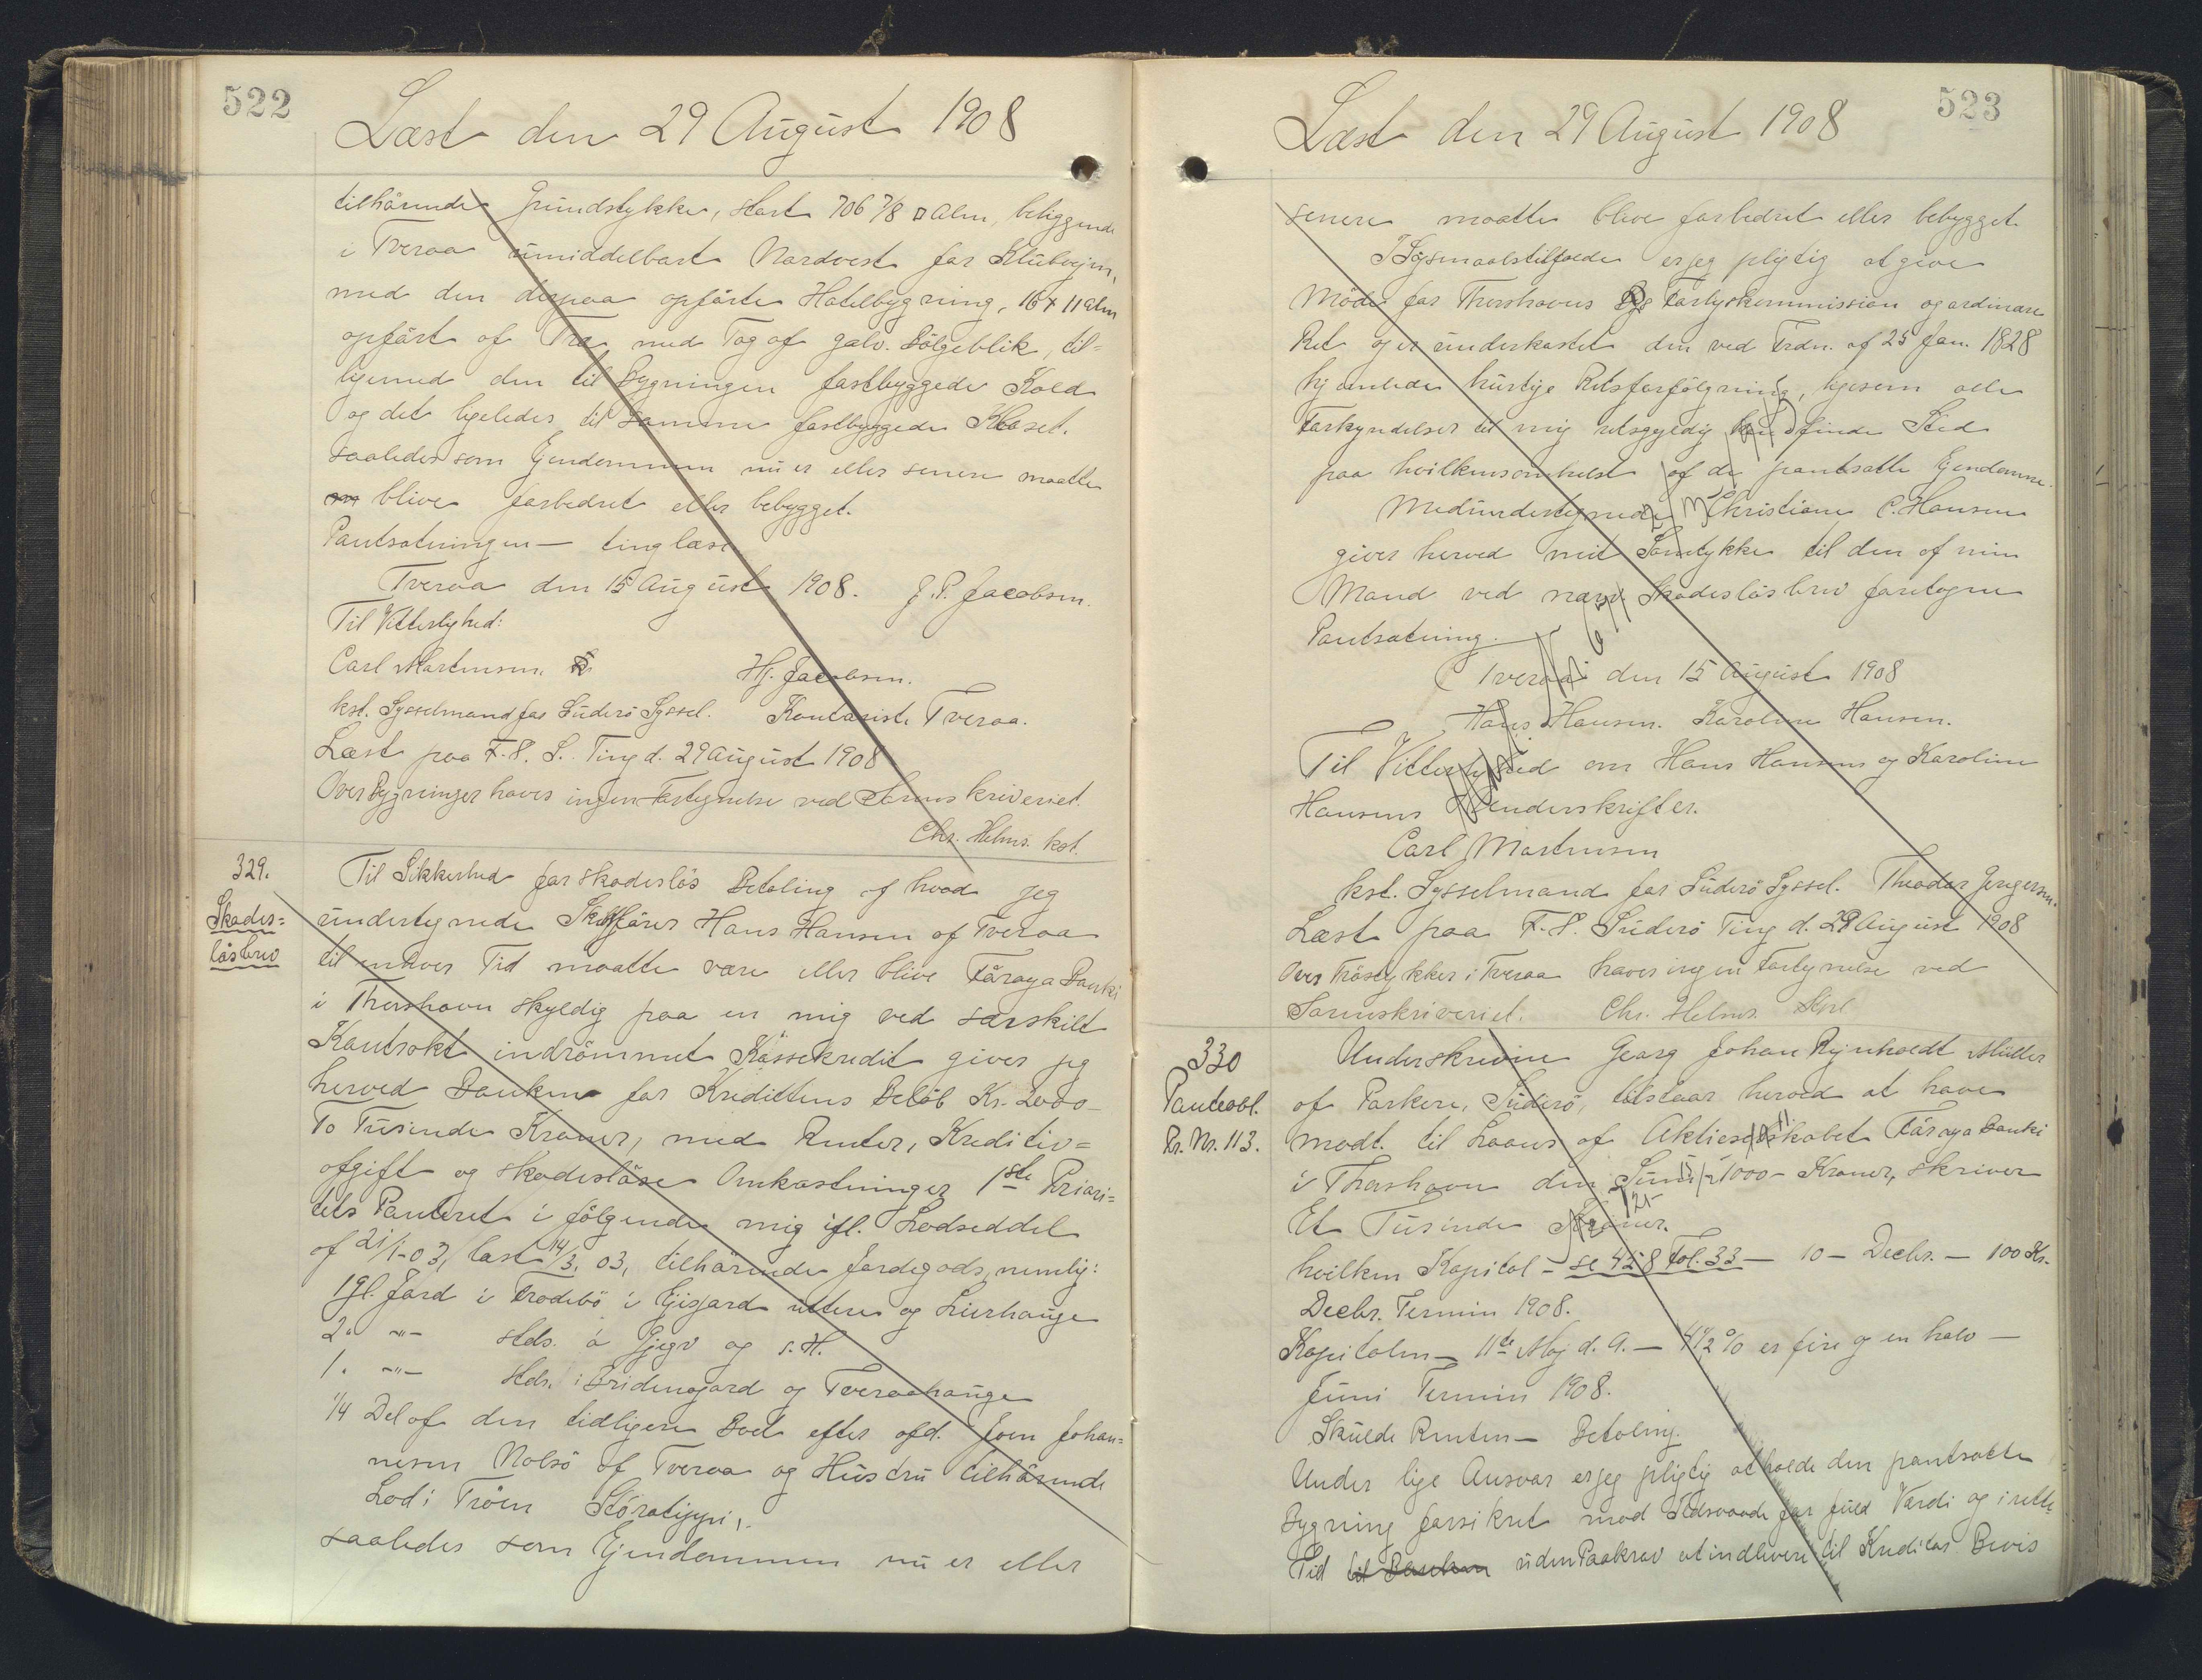 522
Læst den 29 August 1908
tilhörende Grundstykke, stort 706 7/8 □ Alen, beliggende
i Tveraa umiddelbart Nordvest for Klubvejen,
med den derpaa opförte Hotelbygning, 16 x 11 Alen
opfört af Træ med Tag af galv. Bölgeblik, til-
ligemed den til Bygningen fastbyggede Kold
og det ligeledes til Samme fastbyggede Kloset.
saaledes som Ejendommen nu er eller senere maatte
blive forbedret eller bebygget.
Pantsætningen — tinglæses
Tveraa den 15 August 1908. J. P. Jacobsen.
Til Vitterlighed:
Carl Mortensen. Hj. Jacobsen.
kst. Sysselmand for Süderö Syssel. Kontorist Tveraa.
Læst paa F. P. S. Ting d. 29 August 1908
Over Bygninger haves ingen Fortegnelse ved Sorenskriveriet.
Chr. Helms. kst.
329.
Skades=
lösbrev
Til Sikkerhed for skadeslös Betaling af hvad jeg
undertegnede Skipförer Hans Hansen af Tveraa
til enhver Tid maatte være eller blive Föroya Banki
i Thorshavn skyldig paa en mig ved særskilt
Kontrakt indrömmet Kassekredit giver jeg
herved Banken for Kredittens Belöb Kr. 2000 —
To Tusinde Kroner, med Renter, Kreditiv=
afgift og skadeslöse Omkostninger 1ste Priori=
tets Panteret i fölgende mig ifl. Lodseddel
af 21/1-03, læst 14/3. 03, tilhörende Jordegods, nemlig:
1 gl. Jord i Trodebö i Gisgard uttere og Liurhauge
2 " —"— stds. á Gjegv og s. H.
1 " —"— stds. i Fridengjard og Tveraahauge
1/4 Del af den tidligere Boet efter afd. Joen Johan=
nesen Nolsö af Tveraa og Hustru tilhörende
Lod i Tröen Stóratippi,.
saaledes som Ejendommen nu er eller
523
Læst den 29 August 1908
senere maatte blive forbedret eller bebygget.
I Sögsmaalstilfælde er jeg pligtig at give
Möde for Thorshavns Forligskommission og ordinære
Ret og er underkastet den ved Frdn. af 25 Jan. 1828
hjemlede hurtige Retsforfölgning, ligesom alle
Forkyndelser til mig retsgyldig kan finde Sted
paa hvilkensomhelst af de pantsatte Ejendomme.
Medundertegnede Christiane C. Hansen
giver herved mit Samtykke til den af min
Mand ved nærv. Skadeslösbrev foretagne
Pantsætning.
Tveraa den 15 August 1908
Hans Hansen. Karoline Hansen.
Til Vitterlighed om Hans Hansens og Karoline
Hansens Underskrifter.
Carl Mortensen
kst. Sysselmand for Süderö Syssel. Theodor Jørgensen.
Læst paa F. P. Süderö Ting d. 29 August 1908
Over Tröstykker i Tveraa haves ingen Fortegnelse ved
Sorenskriveriet. Chr. Helms. kst
330
Panteobl.
Pr. Nr. 113.
Underskrevne Georg Johan Rejnholdt Müller
af Porkere, Süderö, tilstaar herved at have
modt. til Laans af Aktieselskabet Föroya Banki
i Thorshavn den Sum 1000 — Kroner, skriver
Et Tusinde Kroner.
hvilken Kapital — se 458 Fol. 33 — 10 — Decbr. — 100 Kr.
Decbr. Termin 1908.
Kapitalen — 11te Maj d. A. — 4 1/2 % er fire og en halv —
Juni Termin 1908.
Skulde Renten — Betaling.
Under lige Ansvar er jeg pligtig at holde den pantsatte
Bygning forsikret mod Ildsvaade for fuld Værdi og i rette
Tid til Banken uden Paakrav at indlevere til Kreditor Bevis